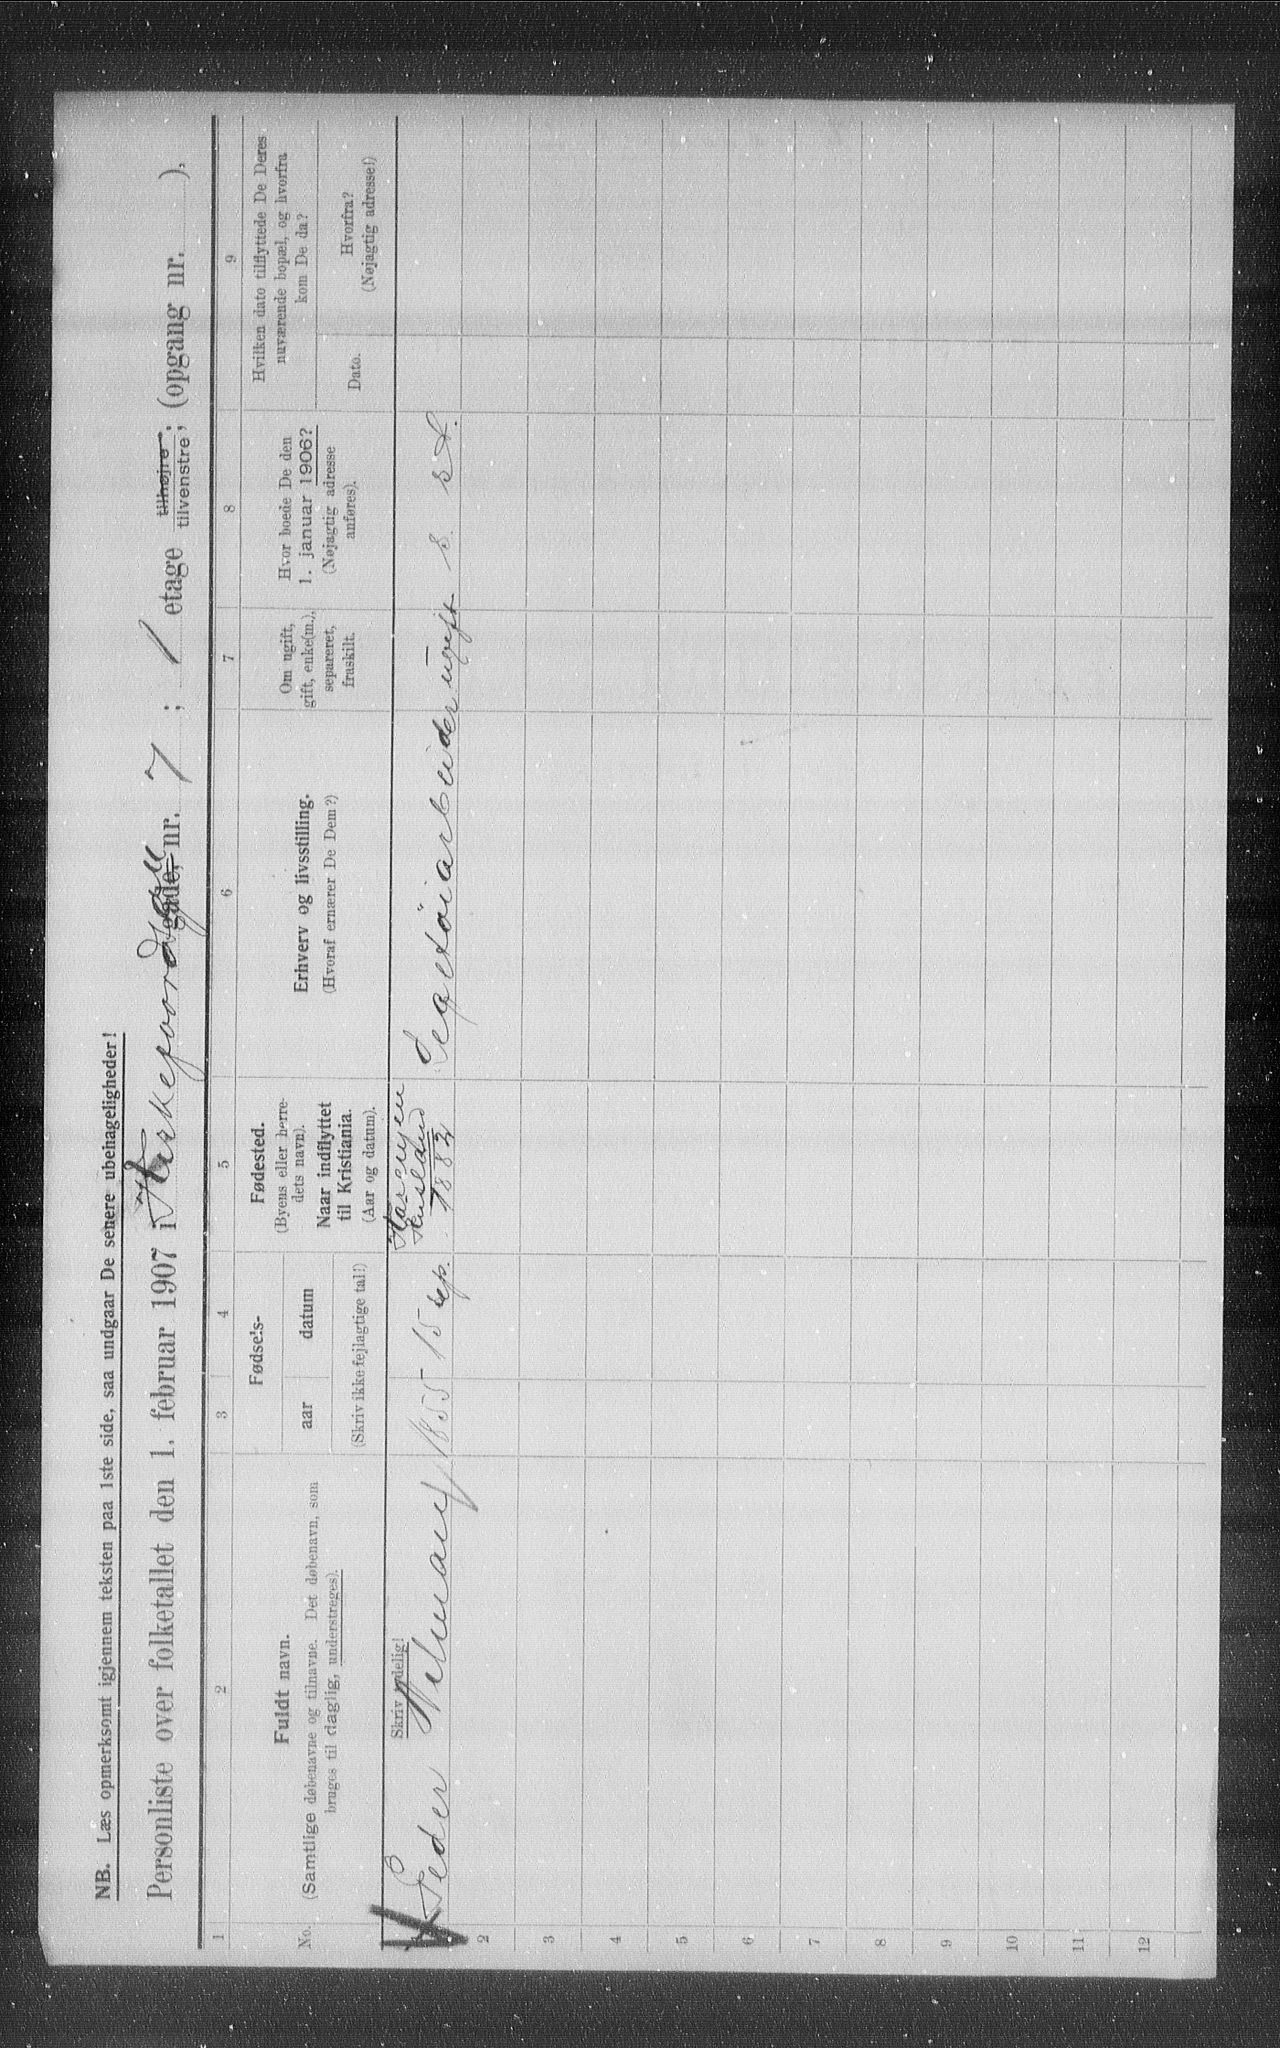 NB. Læs opmerksomt igjennem teksten paa 1ste side, saa undgaar De senere ubehageligheder!
Personliste over folketallet den 1. februar 1907 i gade, nr. 7 ; 1 etage tilhøjre; tilvenstre; (opgang nr. ),
1 2 3 4 5 6 7 8 9
No.
Fuldt navn.
(Samtlige døbenavne og tilnavne. Det døbenavn, som
bruges til daglig, understreges).
Fødsels-
aar datum
(Skriv ikke fejlagtige tal!)
Fødested.
(Byens eller herre-
dets navn).
Naar indflyttet
til Kristiania.
(Aar og datum).
Erhverv og livsstilling.
(Hvoraf ernærer De Dem?)
Om ugift,
gift, enke(m.),
separeret,
fraskilt.
Hvor boede De den
1. januar 1906?
(Nøjagtig adresse
anføres).
Hvilken dato tilflyttede De Deres
nuværende bopæl, og hvorfra
kom De da?
Dato.
Hvorfra?
(Nøjagtig adresse!)
Skriv tydelig!
Peder 1855 15 sep. 1883 ugift s. st.
2
3
4
5
6
7
8
9
10
11
12